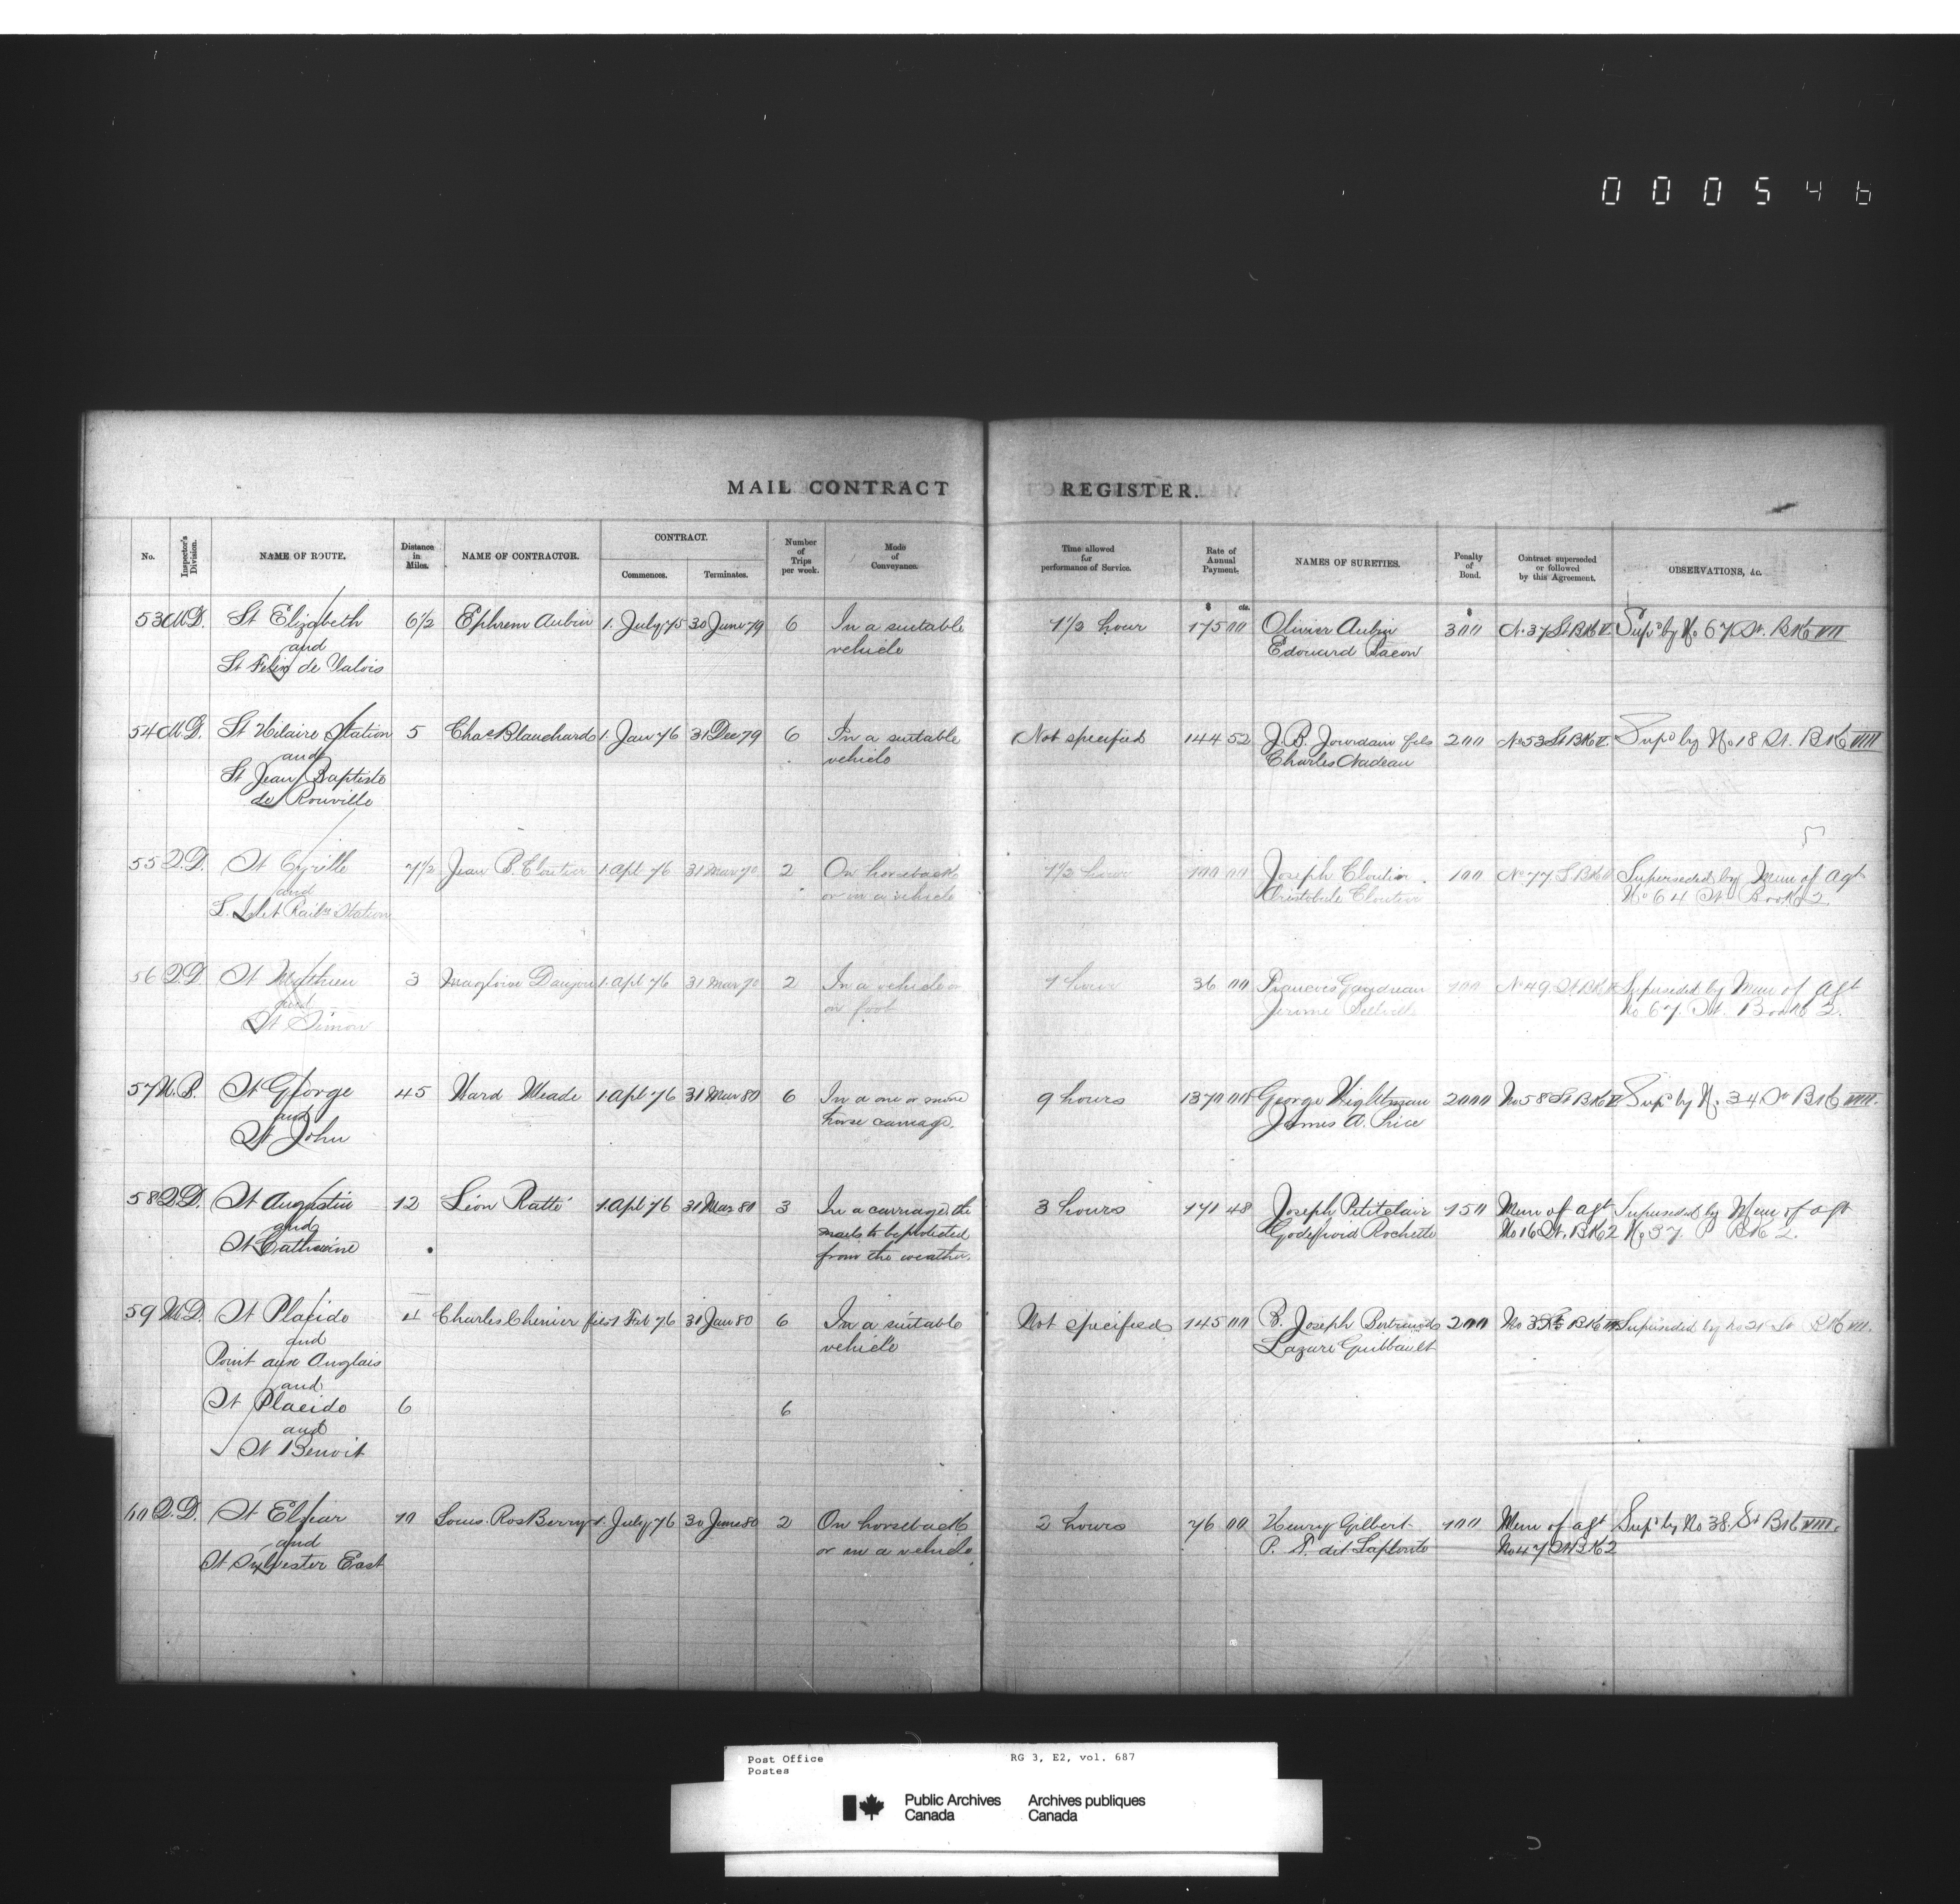 000546
MAIL CONTRACT REGISTER.
No. Inspector's Division. NAME OF ROUTE. Distance in Miles. NAME OF CONTRACTOR. CONTRACT. Commences. Terminates. Number of Trips per week. Mode of Conveyance. Time allowed for performance of Service. Rate of Annual Payment. NAMES OF SURETIES. Penalty of Bond. Contract superseded or followed by this Agreement. OBSERVATIONS, &c.
$ cts. $
53 M.D. St Elizabeth 6½ Ephrem Aubin 1. July 75 30 June 79 6 In a suitable 1½ hour 175 00 Olivier Aubin 300 No 37 St BK V. Supd by No 67 St. BK VII
and vehicle Edouard Bacon
St Felix de Valois
54 M.D. St Hilaire Station 5 Chas Blanchard 1. Jan 76 31 Dec 79 6 In a suitable Not specified 144 52 J. B. Jourdain fils 200 No 53 St BK V. Supd by No 18 St. BK VIII
and vehicle Charles Nadeau
St Jean Baptiste
de Rouville
55 Q.D. St Cyrille 7½ Jean B. Cloutier 1 Apl 76 31 Mar 2 On horseback 1½ hour 100 00 Joseph Cloutier 100 No 77 S BK Superseded by Mem of Agt
and or in a vehicle Aristobule Cloutier No 64 St Book 2.
L'Islet Railwy Station
56 Q.D. St Mathieu 3 Magloire Danjou 1 Apl 76 31 Mar 2 In a vehicle or 1 hour 36 00 Francois Gaudreau 100 No 49 St BK Superseded by Mem of Agt
and on foot Jerome No 67. St. Book 2.
St Simon
57 N.B. St George 45 Ward Meade 1 Apl 76 31 Mar 80 6 In a one or more 9 hours 1370 00 George Wightman 2000 No 58 St BK V Supd by No. 34 St BK VIII.
and horse carriage. James A. Price
St John
58 Q.D. St Augustin 12 Léon Ratté 1 Apl 76 31 Mar 80 3 In a carriage the 3 hours 171 48 Joseph Petitclair 150 Mem of Agt Superseded by Mem of Agt
and mails to be protected Godefroid Rochette No 16 St. BK 2 No 37. P BK 2.
St Catherine from the weather
59 M.D. St Placide 4 Charles Chenier fils 1 Feb 76 31 Jan 80 6 In a suitable Not specified 145 00 B. Joseph Bertrand 200 No BK Superseded by No 21 St BK VII.
and vehicle Lazare Guilbault
Point aux Anglais
and
St Placide 6 6
and
St Benoit
60 Q.D. St Elzear 10 Louis Ros Berry 1. July 76 30 June 80 2 On horseback 2 hours 76 00 Henry Gilbert 100 Mem of Agt Supd by No 38. St BK VIII.
and or in a vehicle P. N. dit Laplante No 47 St BK 2
St Sylvester East
Post Office RG 3, E2, vol. 687
Postes
Public Archives Archives publiques
Canada Canada